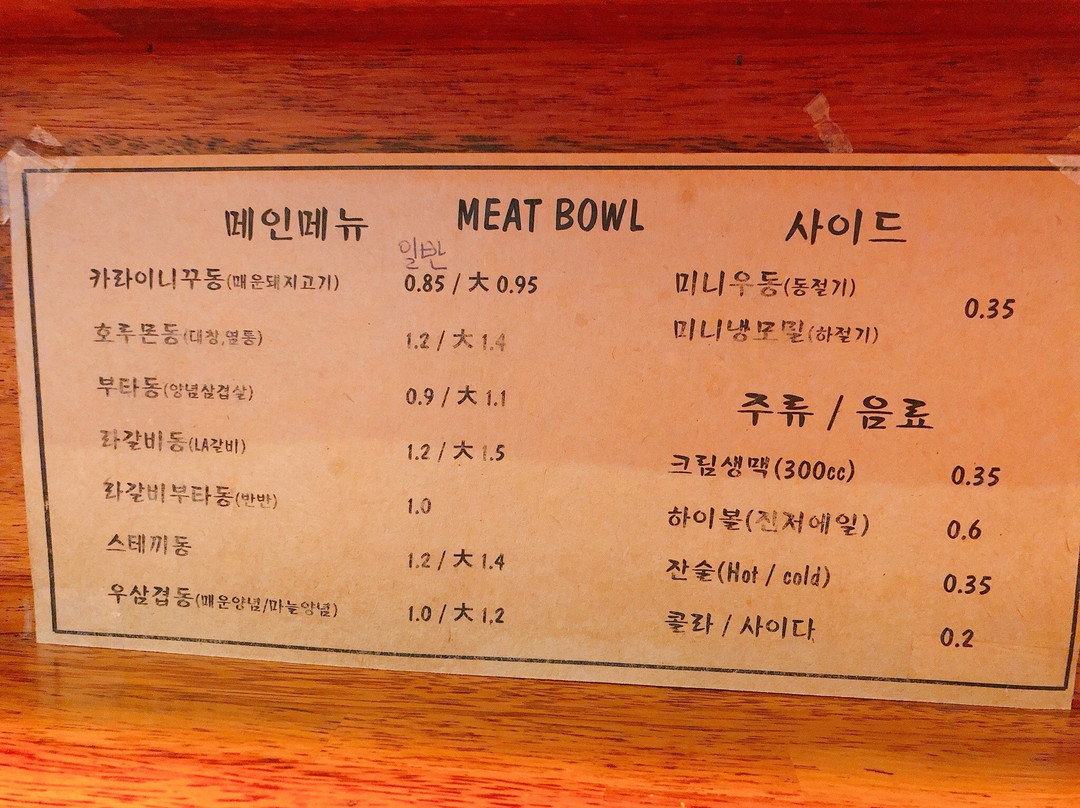 메인메뉴
MEAT BOWL
일반
카라이니꾸동(매운돼지고기) 0.85 / 大 0.95
호루몬동(대창,염통) 1.2 / 大 1.4
부타동(양념삼겹살) 0.9 / 大 1.1
라갈비동(LA갈비) 1.2 / 大 1.5
라갈비부타동(반반) 1.0
스테끼동 1.2 / 大 1.4
우삼겹동(매운양념/마늘양념) 1.0 / 大 1.2
사이드
미니우동(동절기)
0.35
미니냉모밀(하절기)
주류 / 음료
크림생맥(300cc) 0.35
하이볼(진저에일) 0.6
잔술(Hot / cold) 0.35
콜라 / 사이다 0.2